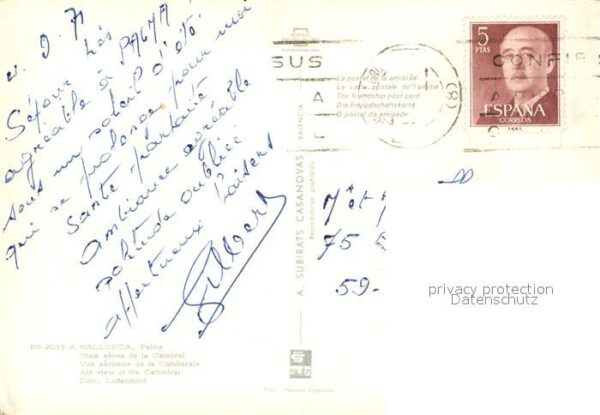 Séjour très
agréable à PALMA
sous un soleil d'été.
qui se prolonge pour moi
Santé parfaite
Ambiance agréable
solitude oubliée
affectueux baisers
Gilbert
No 2019-A MALLORCA, Palma
Vista aérea de la Catedral
Vue aérienne de la Cathédrale
Air view of the Cathedral
Dom, Luftansicht
A. SUBIRATS CASANOVAS VALENCIA
La postal de la amistad
La carte postale de l'amitié
The friendship post card
Die Freundschaftskarte
O postal da amizade
SUS
CONFIE
5
PTAS
ESPAÑA
CORREOS
75
59-
privacy protection
Datenschutz